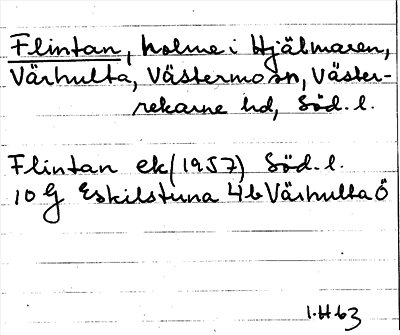 Flintan, holme i Hjälmaren,
Värhulta, Västermo sn, Väster-
rekarne hd, Söd. l.
Flintan ek (1957) Söd. l.
10 G Eskilstuna 4 b Värhulta Ö
1.H 63